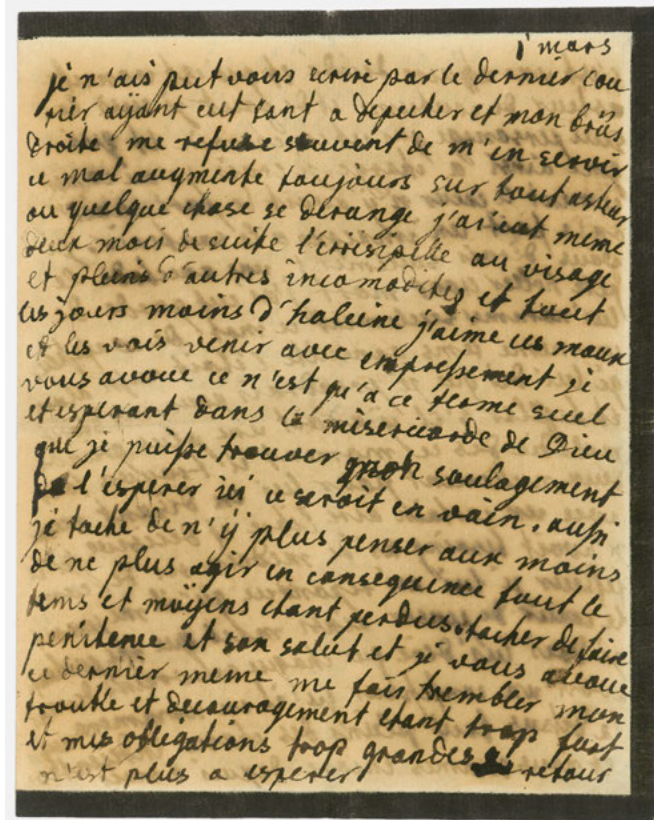 1 mars
je n'ais put vous ecrire par le dernier cou
rier aÿant eut tant a depecher et mon bras
droite me refuse souvent de m'en servir
ce mal augmente toujours sur tout asteur
ou quelque chose se derange j'ai eut meme
deux mois de suite l'erisipelle au visage
et pleins d'autres incomodites et tout
les jours moins d'haleine j'aime ces maux
et les vois venir avec empressement je
vous avoue ce n'est qu'a ce terme seul
et esperant dans la misericorde de Dieu
que je puisse trouver mon soulagement
de l'esperer ici ce seroit en vain. aussi
je tache de n'ÿ plus penser aux moins
de ne plus agir en consequence tout le
tems et moÿens etant perdus. tacher de faire
penitence et son salut et je vous avoue
ce dernier meme me fais trembler mon
trouble et decouragement etant trop fort
et mes obligations trop grandes retour
n'est plus a esperer